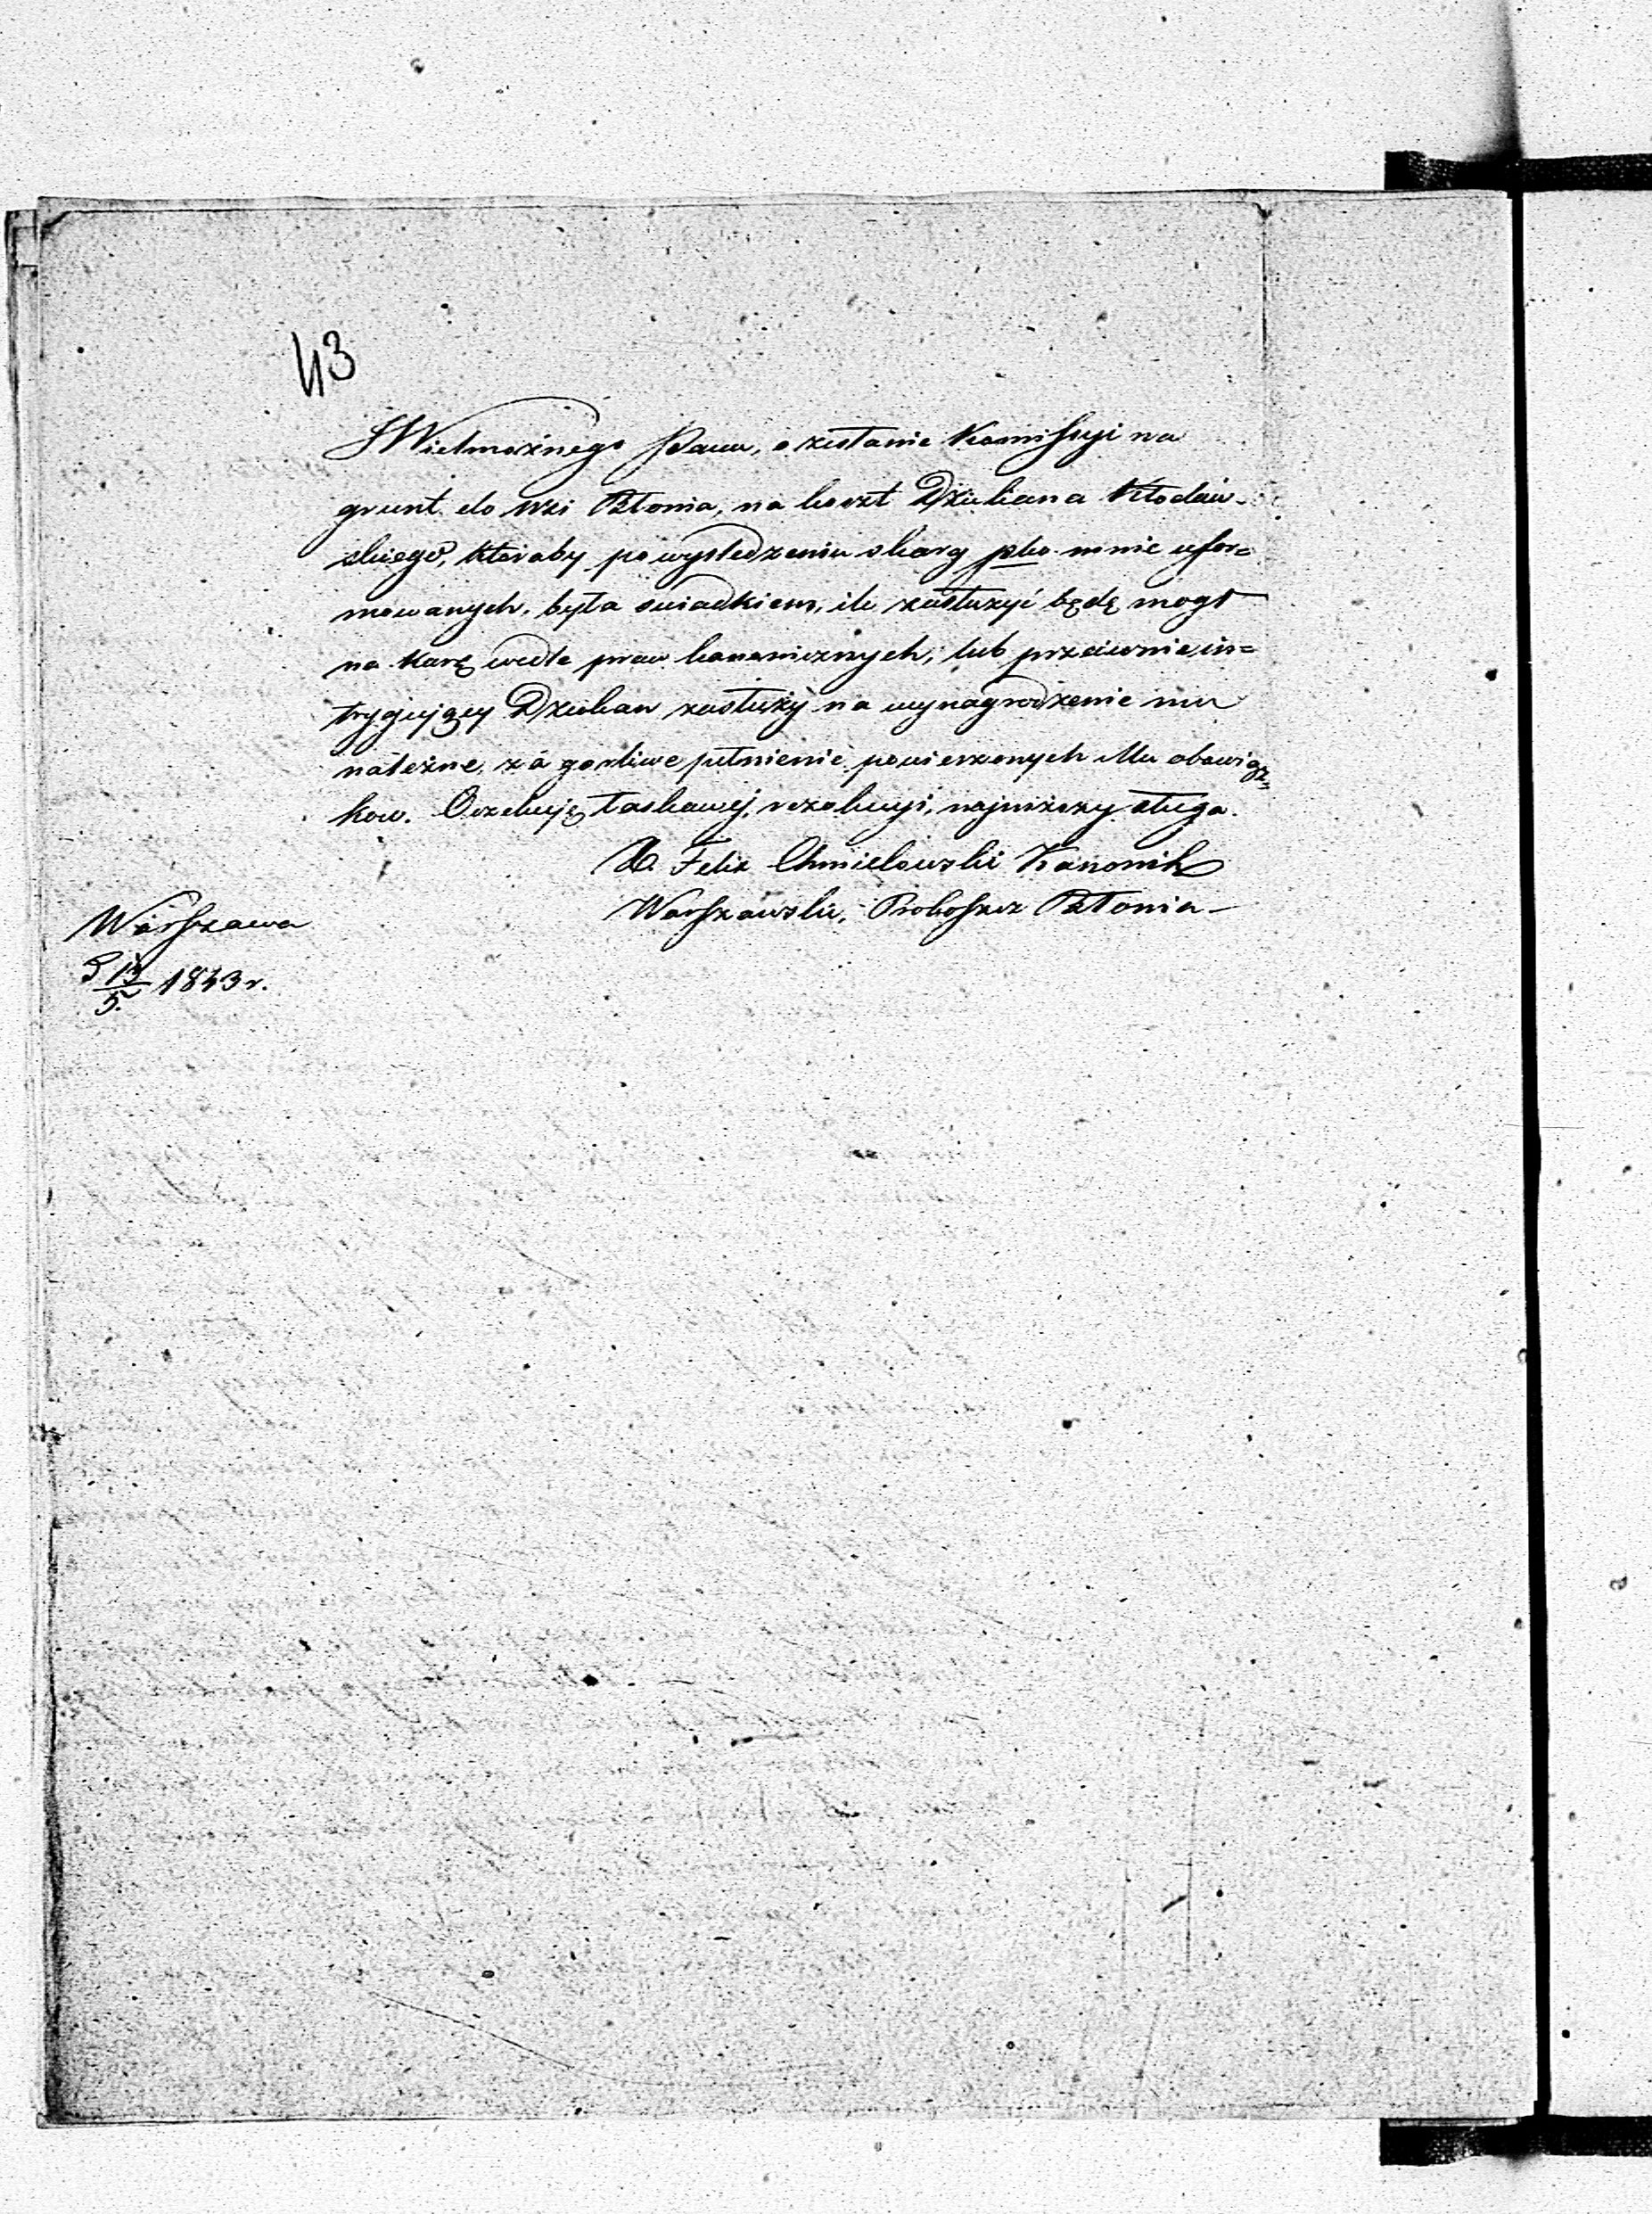 43
JWielmożnego Pana, o zesłanie Kommissyi na
grunt do Wsi Błonia, na koszt Dziekana Kłodaw-
skiego, któraby po wyśledzeniu skarg pko mnie ufor=
mowanych, była swiadkiem, ile zasłużyć będę mogł
na karę wedle praw kanonicznych, lub przeciwnie in=
trygujący Dziekan zasłuży na wynagrodzenie mu
należne, za gorliwe pełnienie powierzonych Mu obowiąz=
kow. Oczekuję łaskawej rezolucyi, najniższy sługa.
X. Felix Chmielowski Kanonik
Warszawski, Proboszcz Błonia
Warszawa
5. 1843 r.